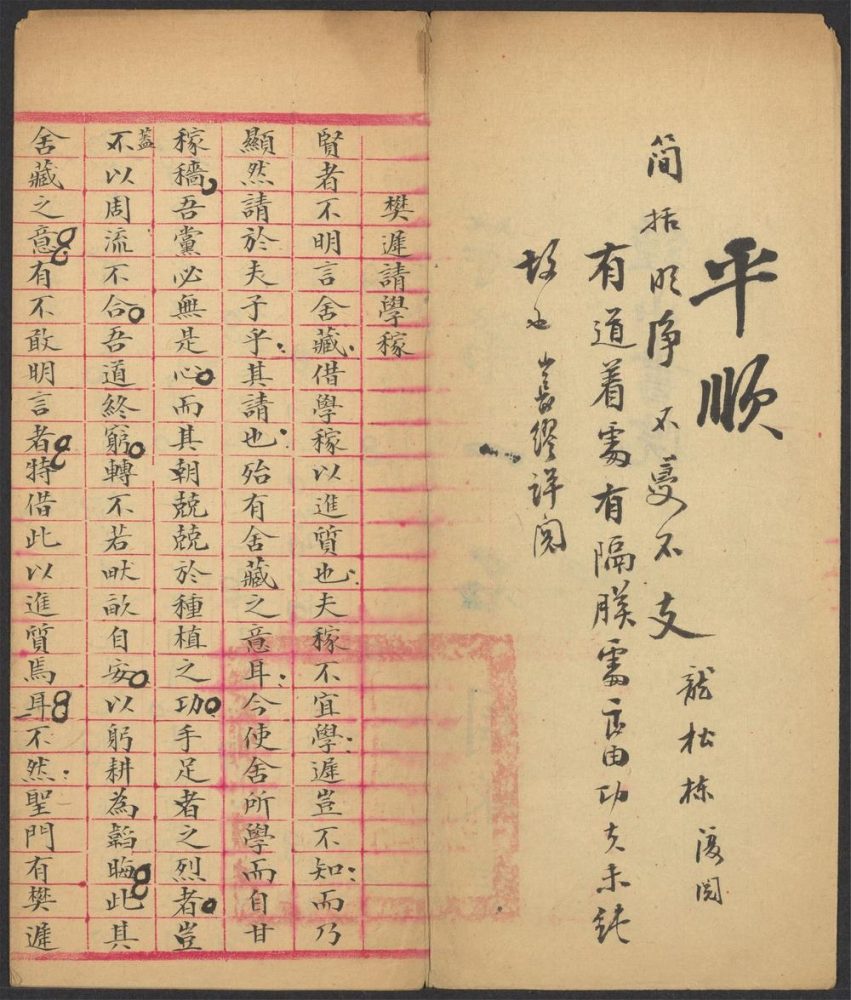 平順
簡括明淨不蔓不支
龍松棟復閱
有道着處有隔膜處良由功夫未純
故也 長繆詳閱
樊遲請學稼
賢者不明言舍藏借學稼以進質也夫稼不宜學遲豈不知而乃
顯然請於夫子乎其請也殆有舍藏之意耳今使舍所學而自甘
稼穡吾黨必無是心而其朝兢兢於種植之功手足者之烈者豈
蓋
不以周流不合吾道終窮轉不若畎畝自安以躬耕為韜晦此其
舍藏之意有不敢明言者特借此以進質焉耳不然聖門有樊遲